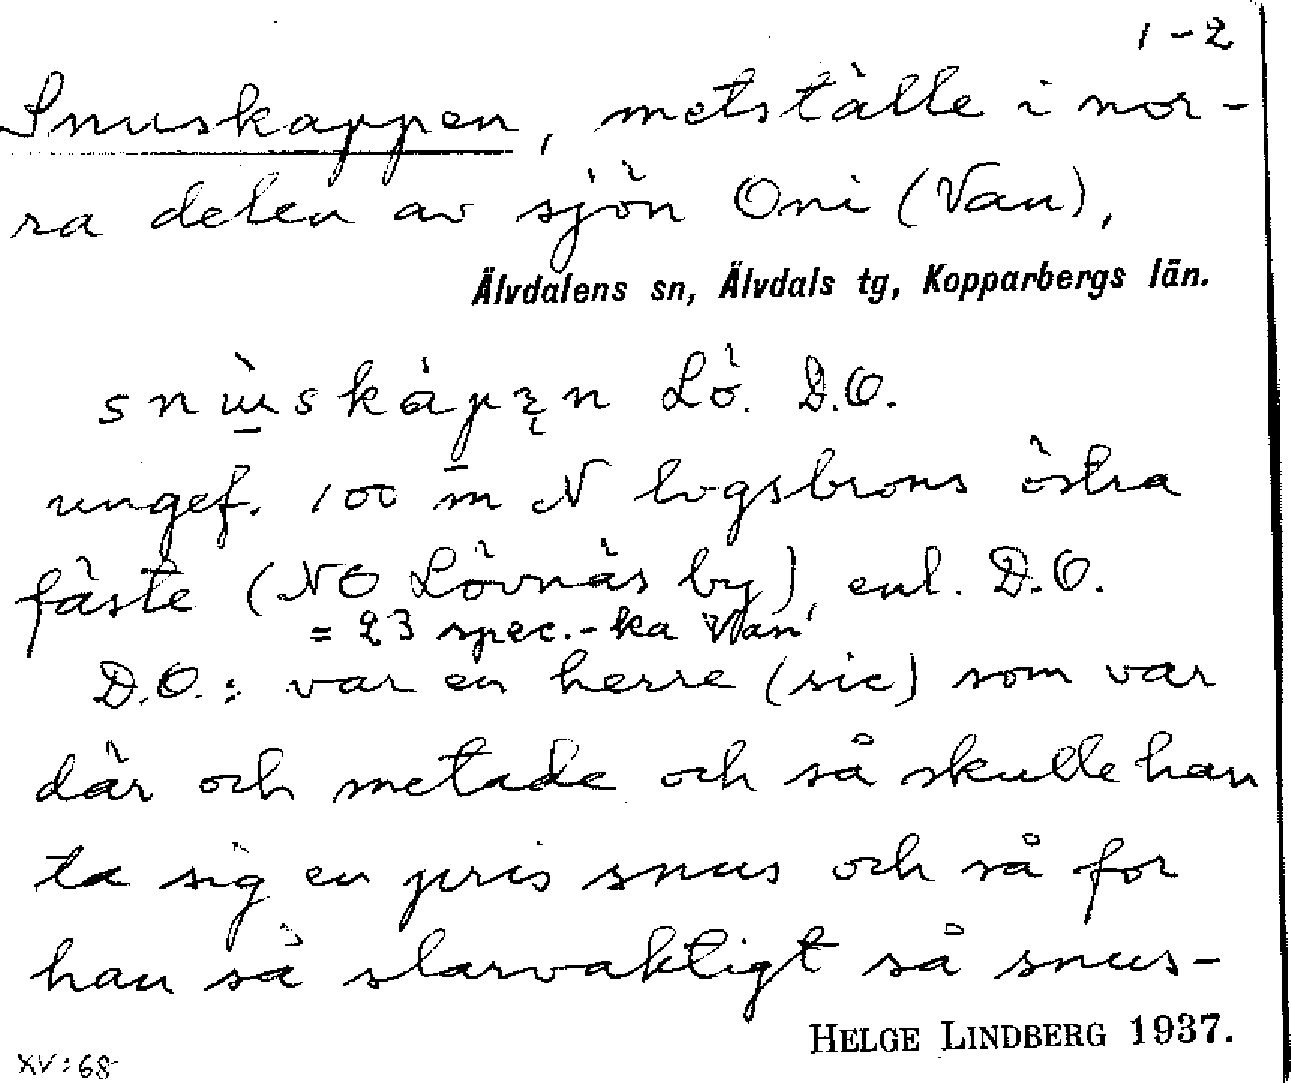 1-2
Snuskappen, metställe i nor-
ra delen av sjön Oni (Van),
Älvdalens sn, Älvdals tg, Kopparbergs län.
Lö. D.O.
ungef. 100 m N logsbrons östra
fäste (NO Lövnäs by), enl. D.O.
= 23 spec.-ka Van'
D.O.: var en herre (sic) som var
där och metade och så skulle han
ta sig en pris snus och så for
han så slarvaktigt så snus-
HELGE LINDBERG 1937.
XV:68